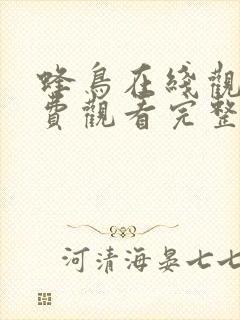 蜂鳥在綫觀
費觀看完整
河清海晏七七